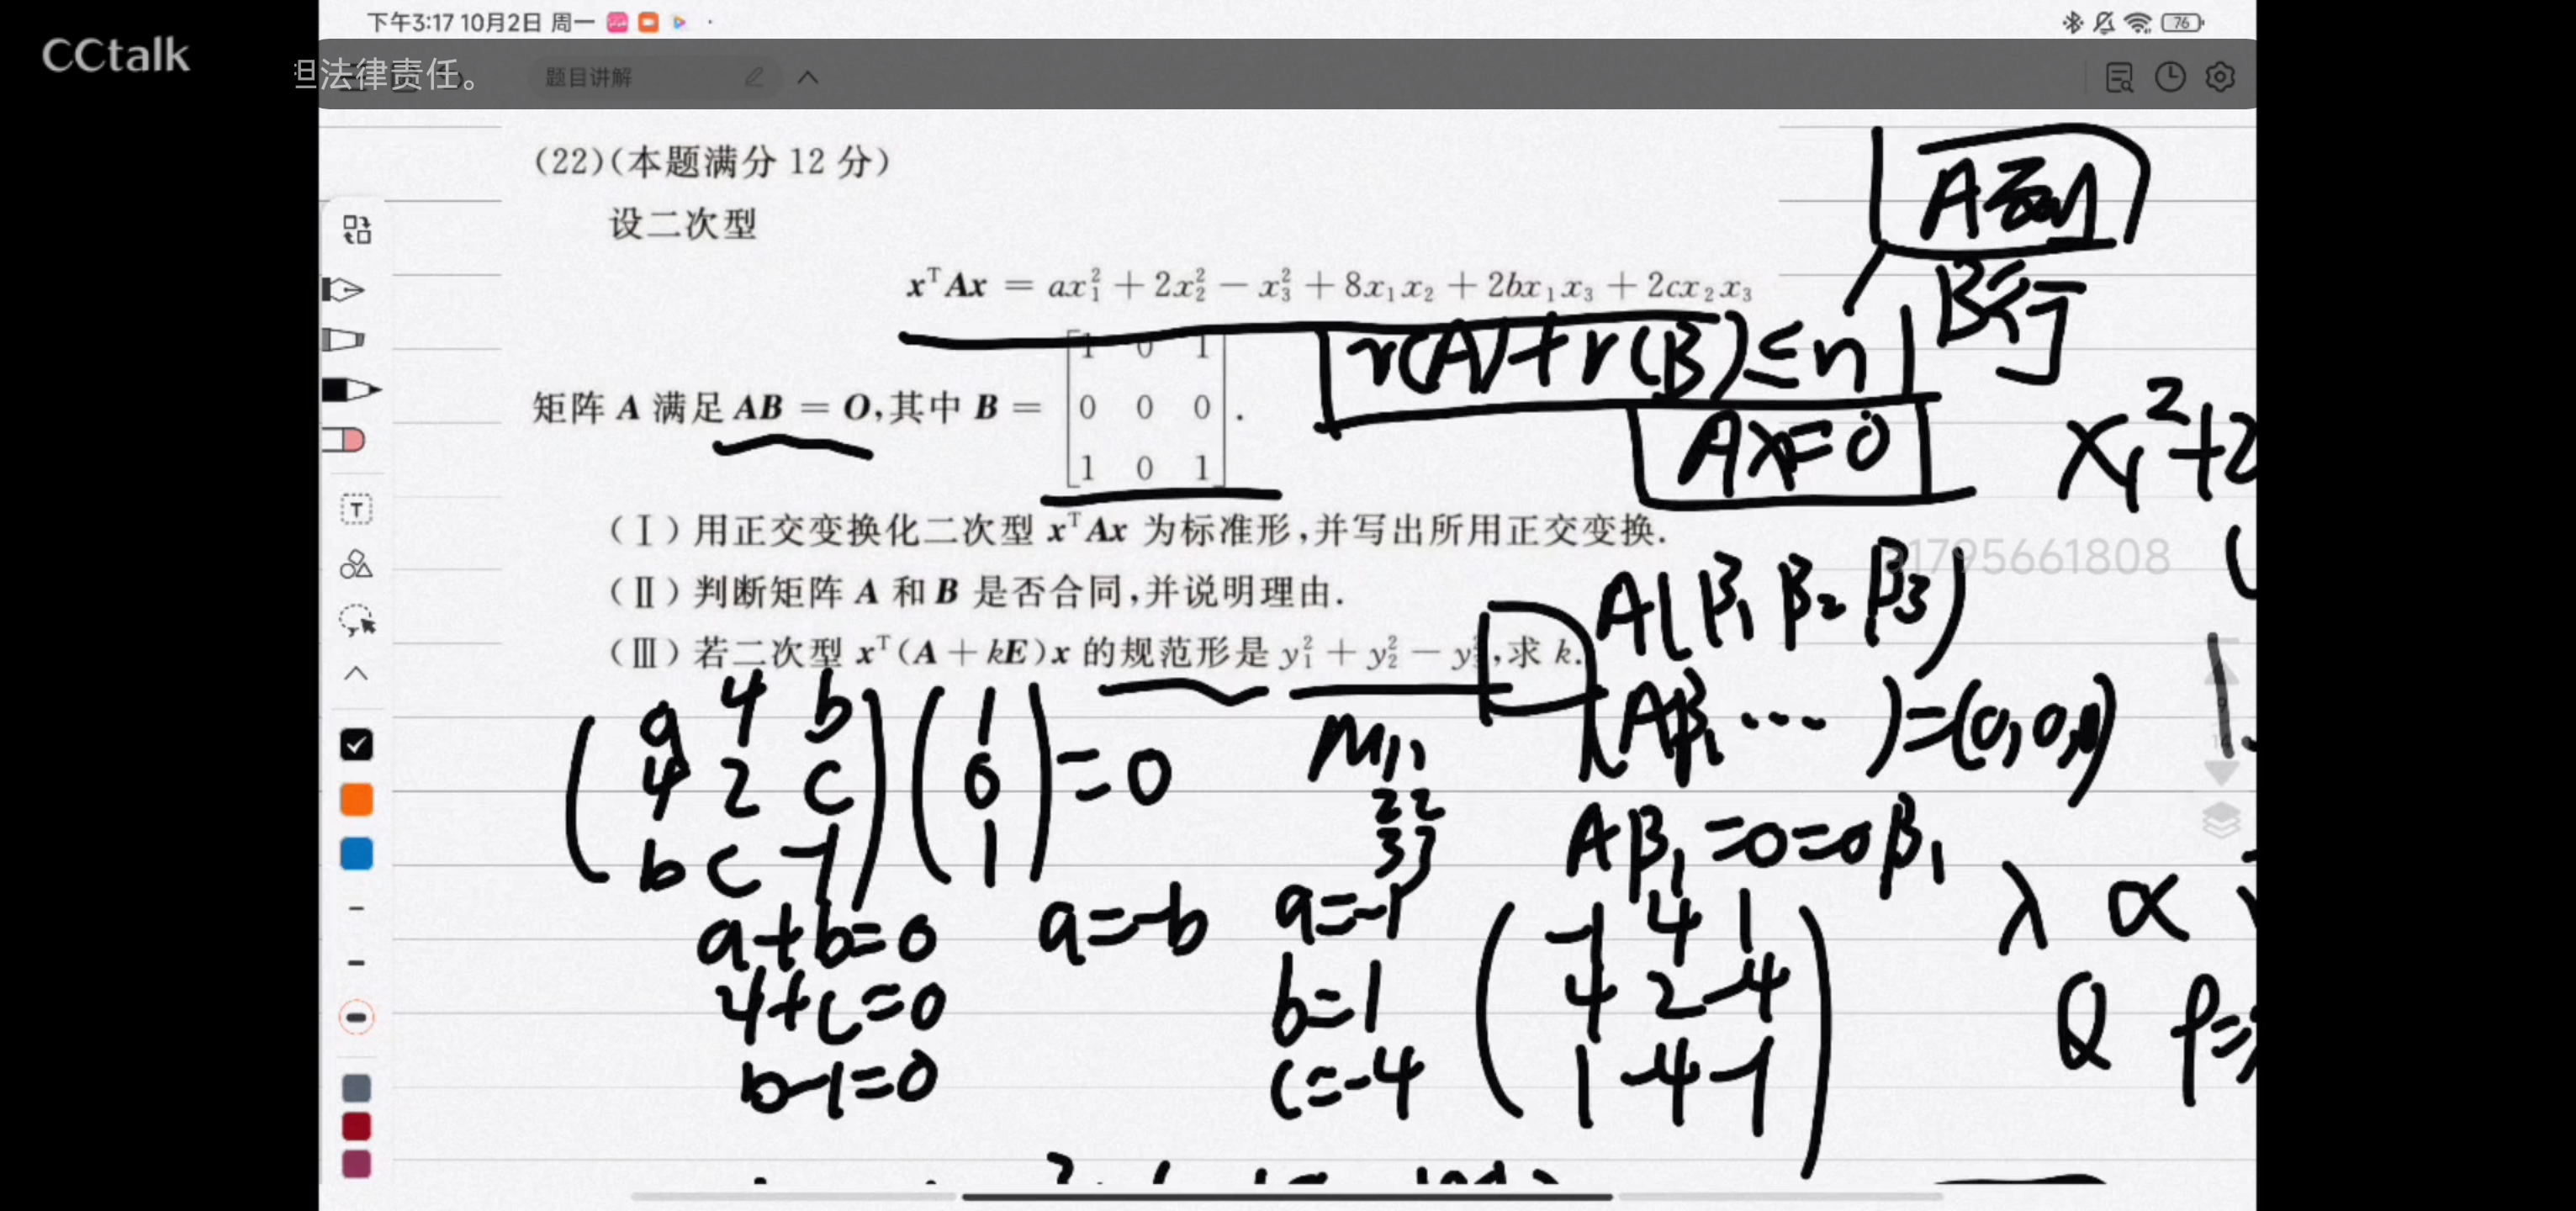 下午3:17 10月2日 周一
76
CCtalk
担法律责任。
题目讲解
(22)(本题满分 12 分)
设二次型
xᵀAx = ax₁² + 2x₂² − x₃² + 8x₁x₂ + 2bx₁x₃ + 2cx₂x₃
矩阵 A 满足 AB = O,其中 B = [1 0 1
0 0 0
1 0 1].
(Ⅰ)用正交变换化二次型 xᵀAx 为标准形,并写出所用正交变换.
(Ⅱ)判断矩阵 A 和 B 是否合同,并说明理由.
(Ⅲ)若二次型 xᵀ(A + kE)x 的规范形是 y₁² + y₂² − y₃²,求 k.
B行
r(A)+r(B)≤n
AX=0
X₁²+2
31795661808
A(β₁ β₂ β₃)
(Aβ₁ ⋯ )=(0,0,0)
Aβ₁=0=0β₁
(a 4 b
4 2 c
b c -1)(1
0
1)=0
M₁₁
22
33
a+b=0
4+c=0
b-1=0
a=-b
a=-1
b=1
c=-4
(-1 4 1
4 2 -4
1 -4 -1)
λ α
Q P=